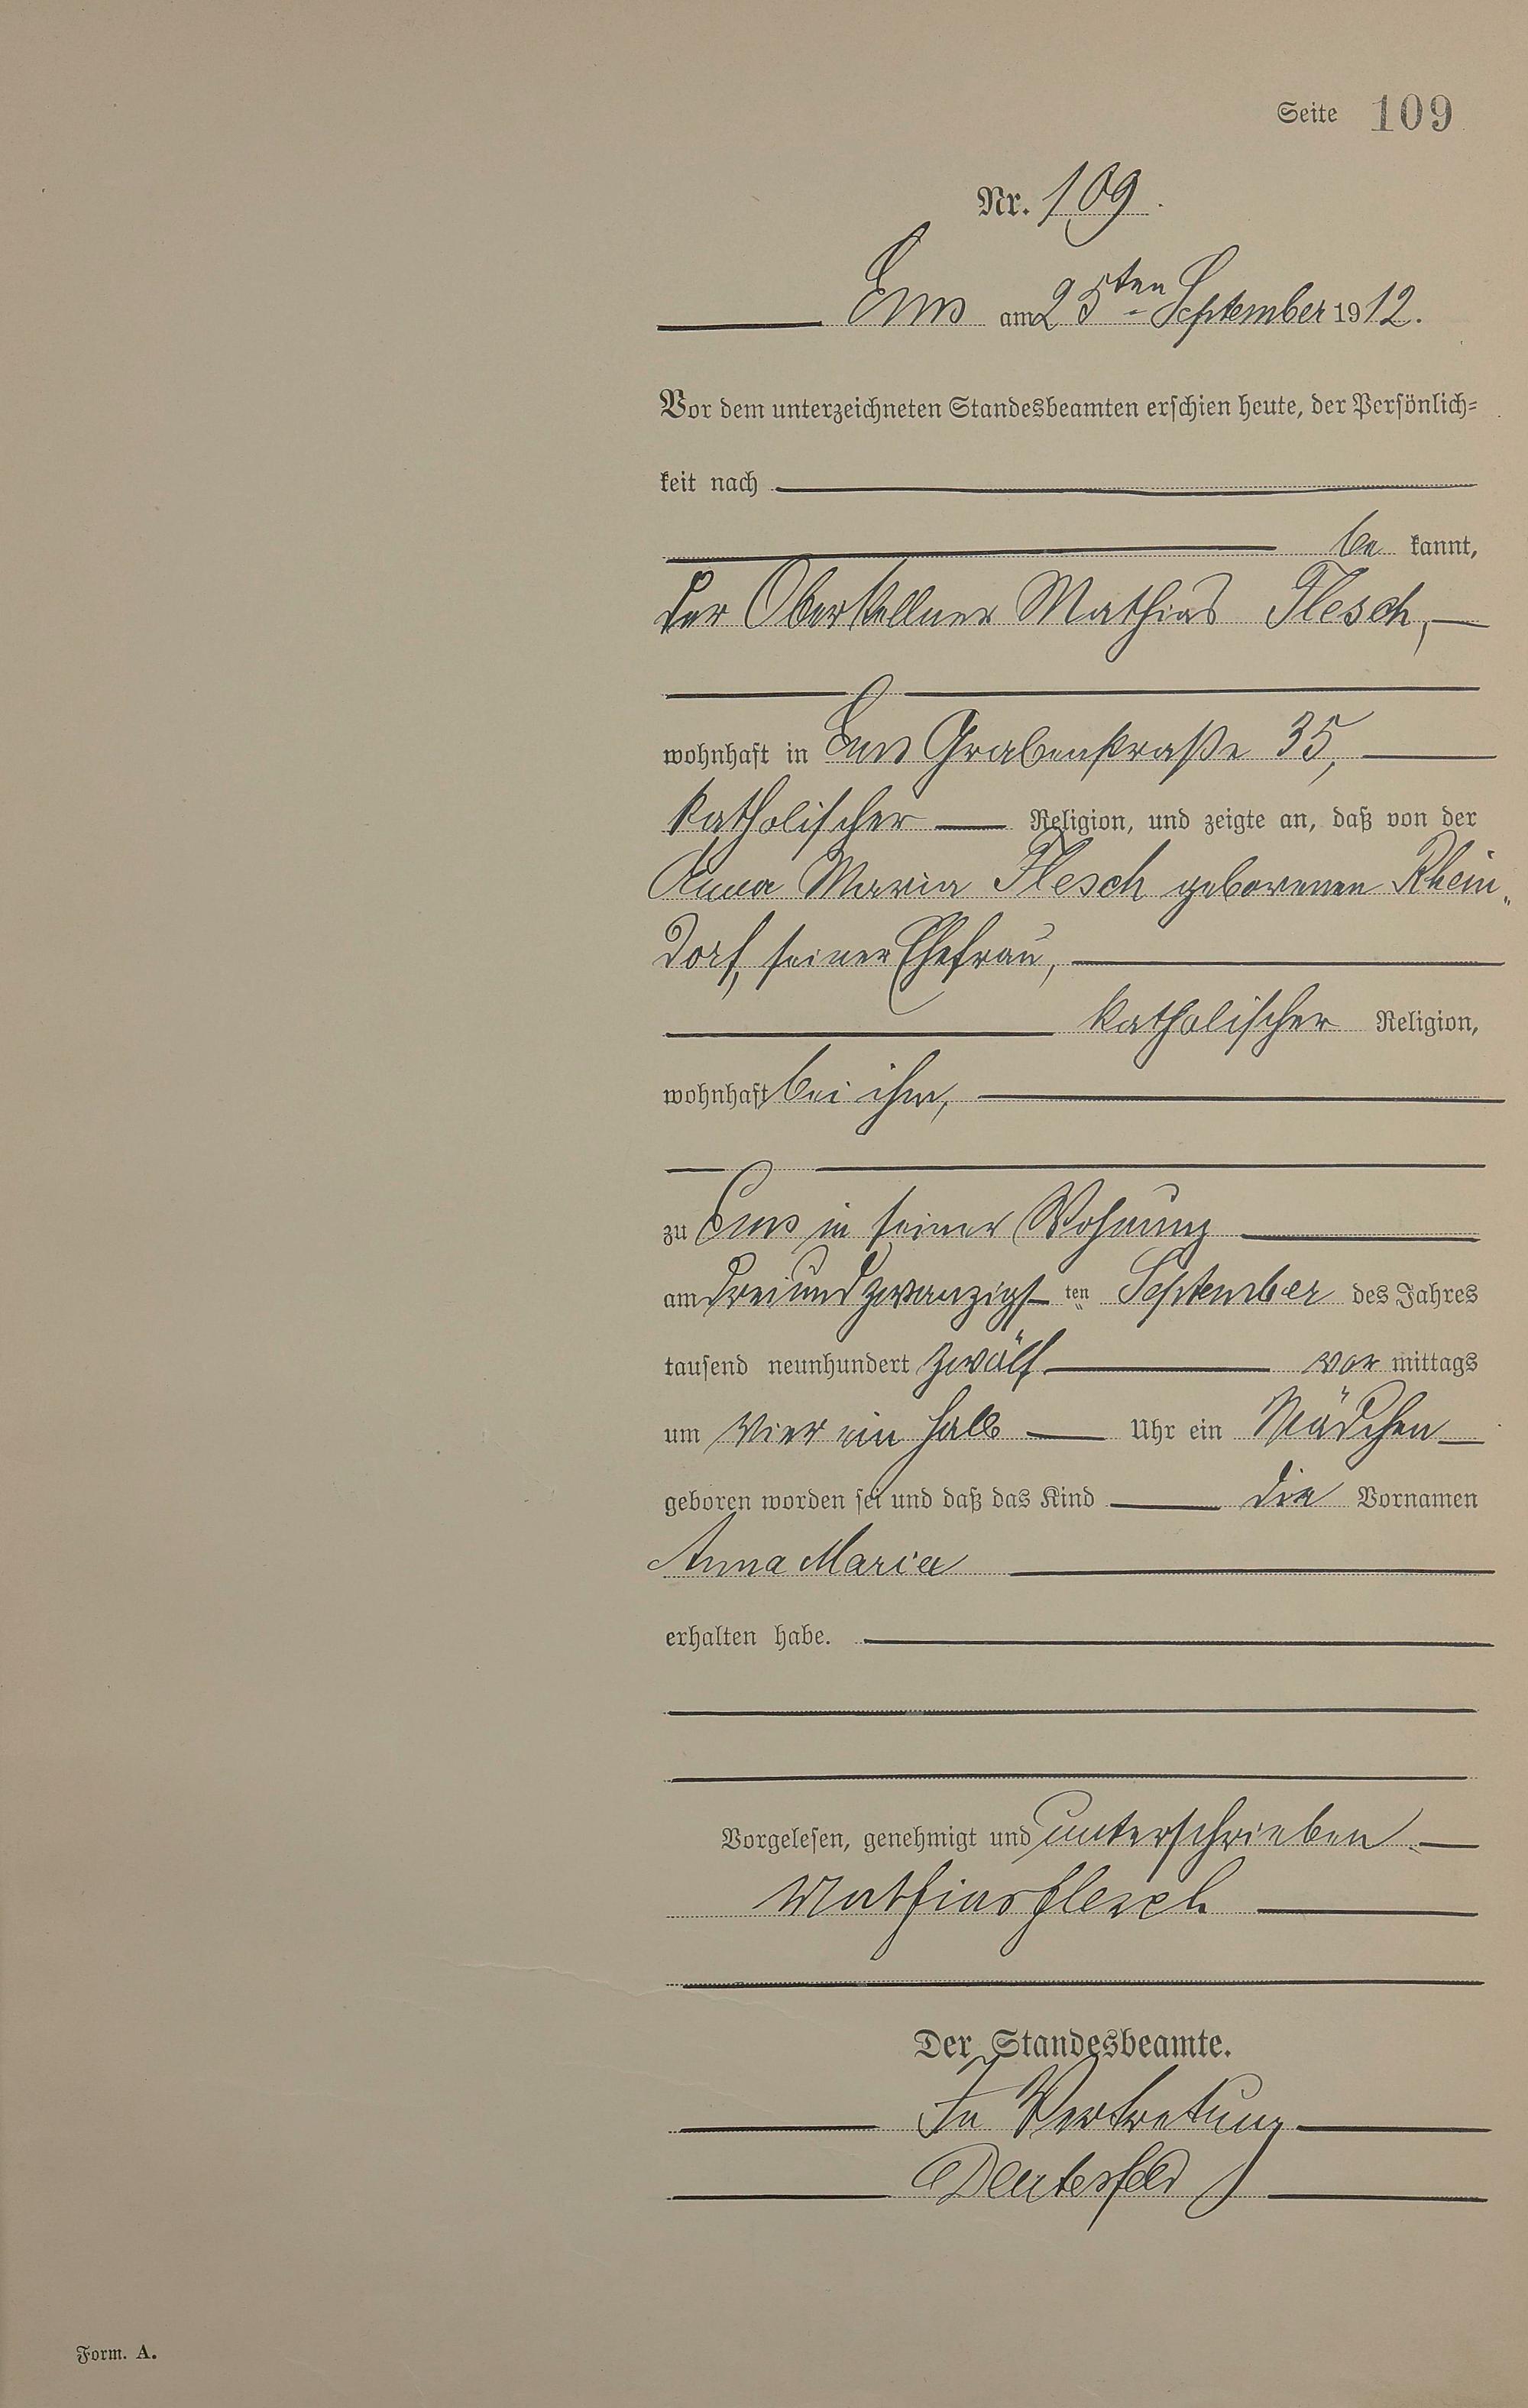 Seite 109
Nr. 109.
Ems am 25ten September 1912.
Vor dem unterzeichneten Standesbeamten erschien heute, der Persönlich=
keit nach
be kannt,
der Oberkellner Mathias Flesch,
wohnhaft in Ems Grabenstraße 35,
katholischer Religion, und zeigte an, daß von der
Anna Maria Flesch geborenen Rhein„
dorf, seiner Ehefrau,
katholischer Religion,
wohnhaft bei ihm,
zu Ems in seiner Wohnung
am dreiundzwanzigst ten September des Jahres
tausend neunhundert zwölf vor mittags
um vier ein halb Uhr ein Mädchen
geboren worden sei und daß das Kind die Vornamen
Anna Maria
erhalten habe.
Vorgelesen, genehmigt und unterschrieben
Mathias Flesch
Der Standesbeamte.
In Vertretung
Form. A.